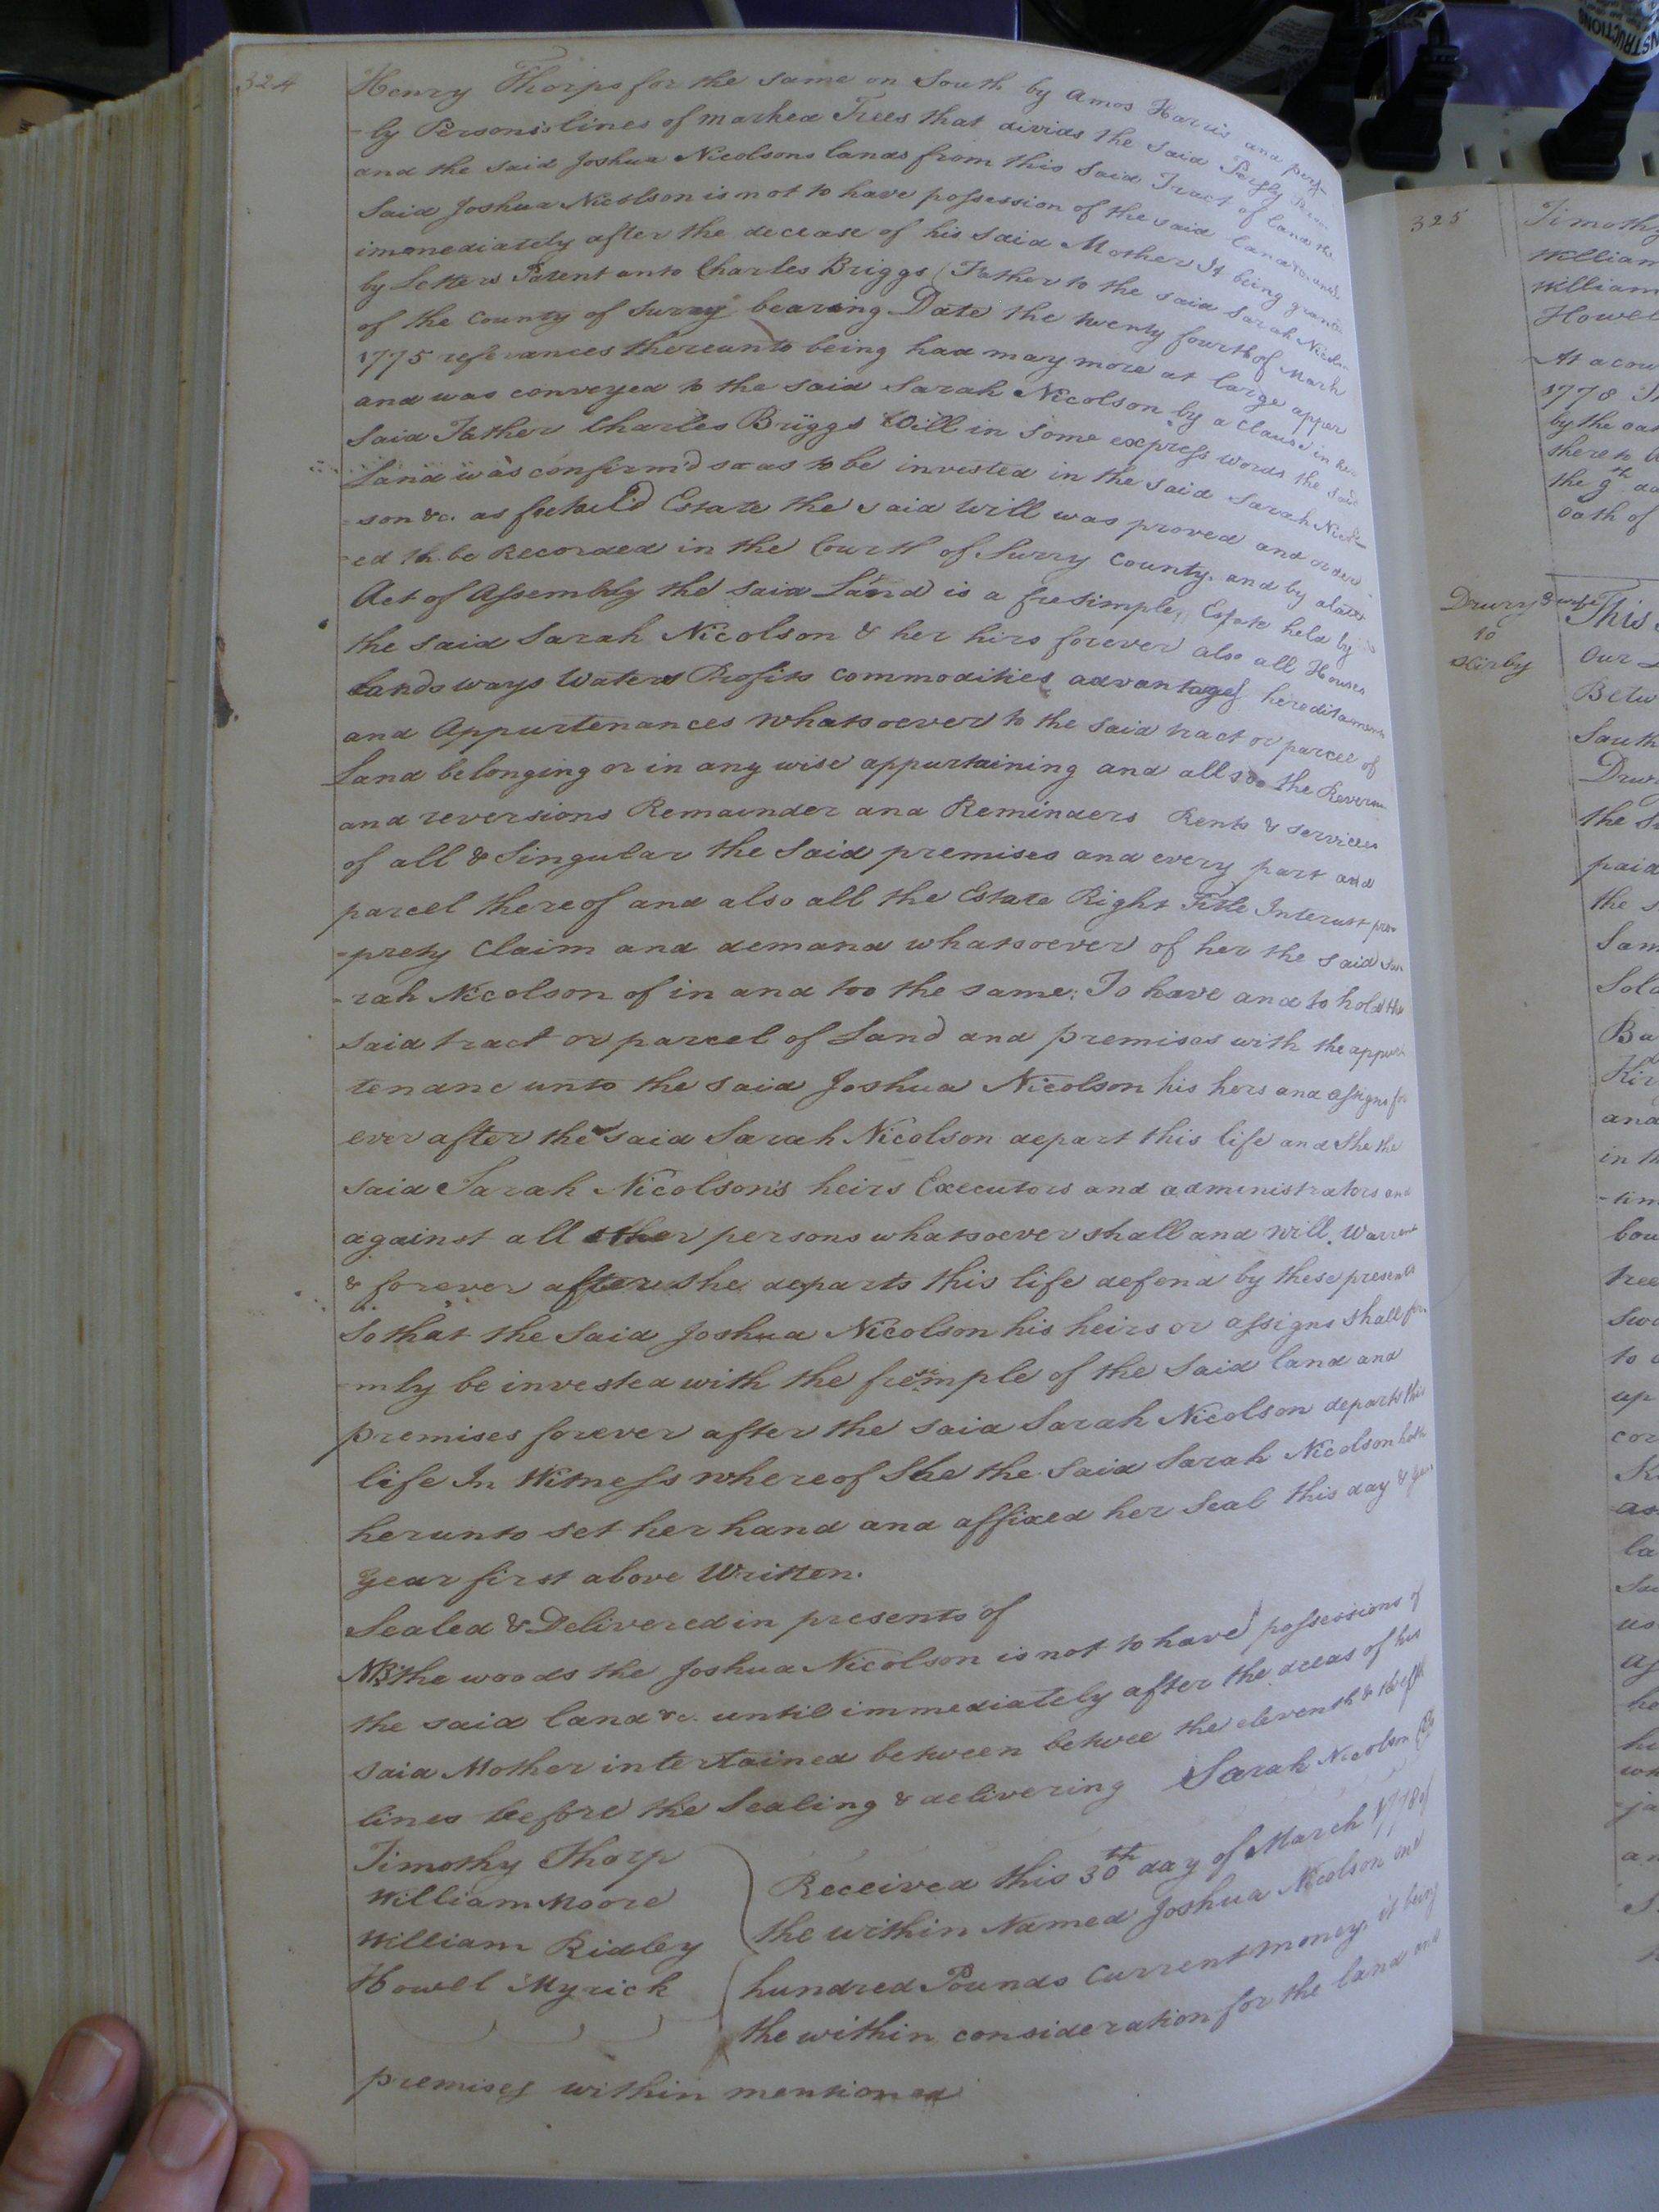 324
Henry Thorps for the same on South by Amos Harris and part
-ly Persons's lines of marked Trees that divids the said
and the said Joshua Nicolsons lands from this said Tract of land the
Said Joshua Nicolson is not to have possession of the said land
immediately after the decease of his said Mother It being
by Letters Patent unto Charles Briggs (Father to the said Sarah
of the County of Surry bearing Date the twenty fourth of March
1775 referances thereunto being had may more at large apper
and was conveyed to the said Sarah Nicolson by a clause in her
said Father Charles Briggs Will in some express words the said
Land was confirm'd so as to be invested in the said Sarah
-son &c. as Estate the said Will was proved and order
-ed to be Recorded in the Court of Surry County. and by
Act of Assembly the said Land is a fesimple Estate held by
the said Sarah Nicolson & her hirs forever also all Houses
Lands ways Waters Profits commodities advantages hereditaments
and Appurtenances whatsoever to the said tract or parcel of
Land belonging or in any wise appurtaining and allsoo the
and reversions Remainder and Reminders Rents & services
of all & Singular the Said premises and every part and
parcel thereof and also all the Estate Right Title Interust pro
-prety Claim and demand whatsoever of her the said Sa
-rah Nicolson of in and too the same: To have and to hold the
said tract or parcel of Land and premises with the appur
tenanc unto the said Joshua Nicolson his hers and assigns for
ever after the said Sarah Nicolson depart this life and She the
said Sarah Nicolson's heirs Executors and administrators and
against all other persons whatsoever shall and will Warrent
& forever after she departs this life defend by these presents
So that the Said Joshua Nicolson his heirs or assigns Shall fir
-mly be invested with the fesimple of the Said land and
premises forever after the said Sarah Nicolson departs this
life In Witness whereof She the Said Sarah Nicolson hath
herunto set her hand and affixed her Seal this day &
year first above Written.
Sealed & Delivered in presents of
NB the woods the Joshua Nicolson is not to have possessions of
the said land &c. until immediately after the deceas of his
said Mother intertained between betwee the eleventh &
lines before the Sealing & delivering Sarah Nicolson
Timothy Thorp
William Moore
William Ridley
Howel Myrick
Received this 30th day of March 1778 of
the within Named Joshua Nicolson one
hundred Pounds Current money, it being
the within consideration for the land and
premises within mentioned
325
Timothy
William
William
Howel
At a cou
1778
by the oat
there to
the 9th da
oath of
Drury & wife
to
Kirby
This
Our
Betw
South
Drur
the
paid
the s
Sam
Sold
Ba
Kir
and
in th
-tim
bou
tree
swa
to
up
cor
as
la
us
he